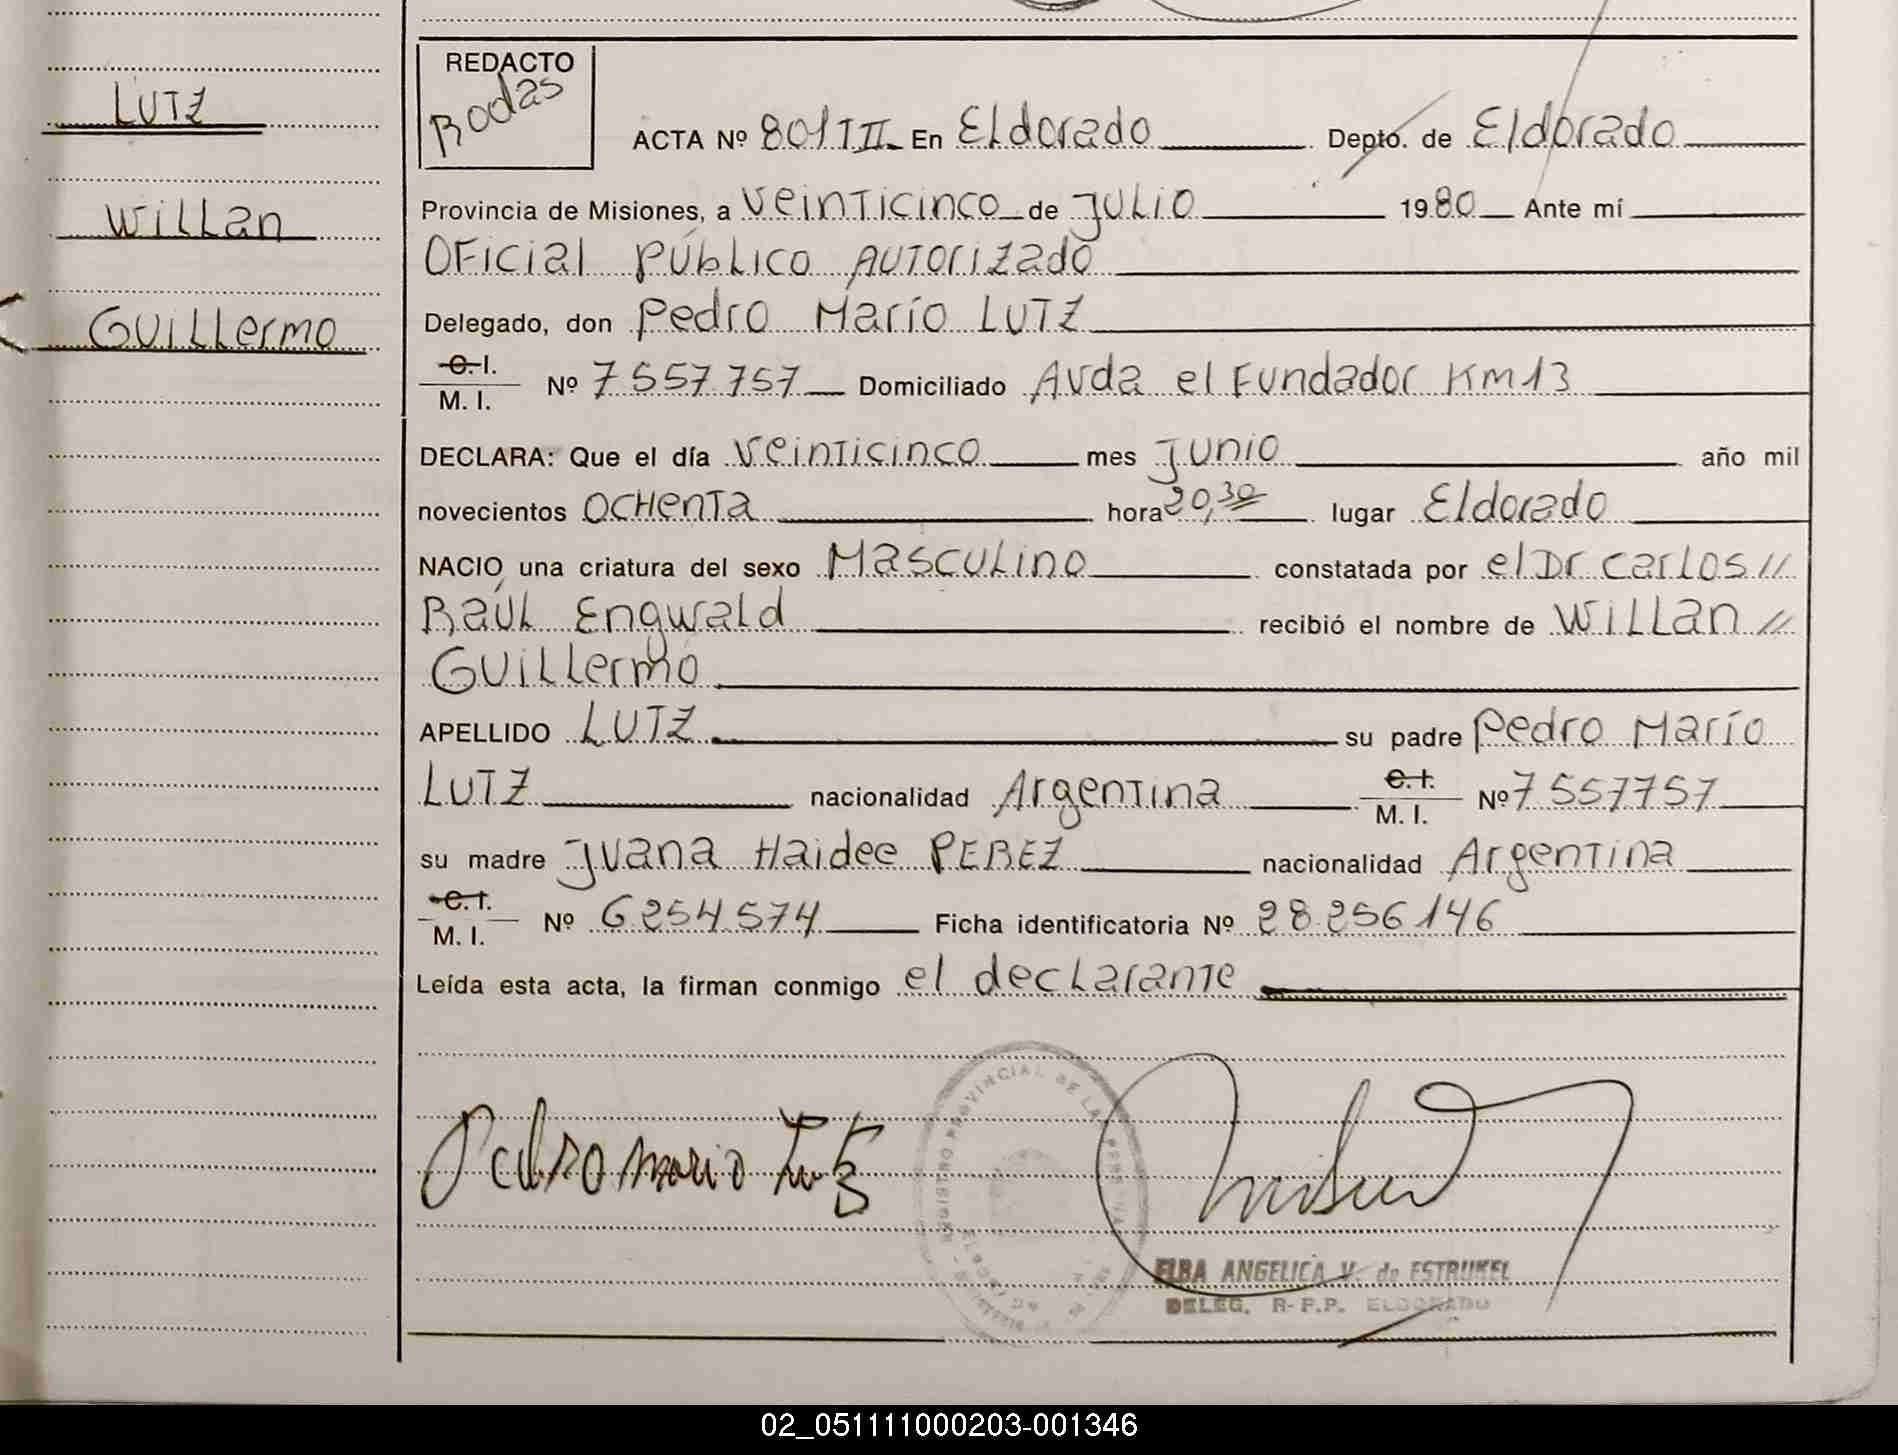 LUTZ
Willan
Guillermo
REDACTO
Rodas
ACTA Nº 801 III En Eldorado Depto. de Eldorado
Provincia de Misiones, a Veinticinco de Julio 1980 Ante mí
Oficial Público Autorizado
Delegado, don Pedro Marío LUTZ
C. I.
M. I. Nº 7557757 Domiciliado Avda el Fundador Km 13
DECLARA: Que el día Veinticinco mes Junio año mil
novecientos Ochenta hora 20,30 lugar Eldorado
NACIO una criatura del sexo Masculino constatada por el Dr Carlos //
Raúl Engwald recibió el nombre de Willan //
Guillermo
APELLIDO LUTZ su padre Pedro Marío
LUTZ nacionalidad Argentina C. I. M. I. Nº 7557757
su madre Juana Haidee PEREZ nacionalidad Argentina
C. I.
M. I. Nº 6254574 Ficha identificatoria Nº 28.256.146
Leída esta acta, la firman conmigo el declarante
Pedro Mario Lutz
PROVINCIAL DE LA
ELBA ANGELICA V. de ESTRUKEL
DELEG. R-P.P. ELDORADO
02_051111000203-001346